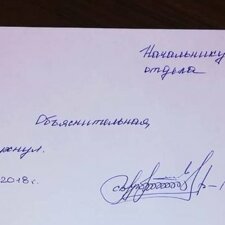 Начальнику
отдела
Объяснительная
2018г.